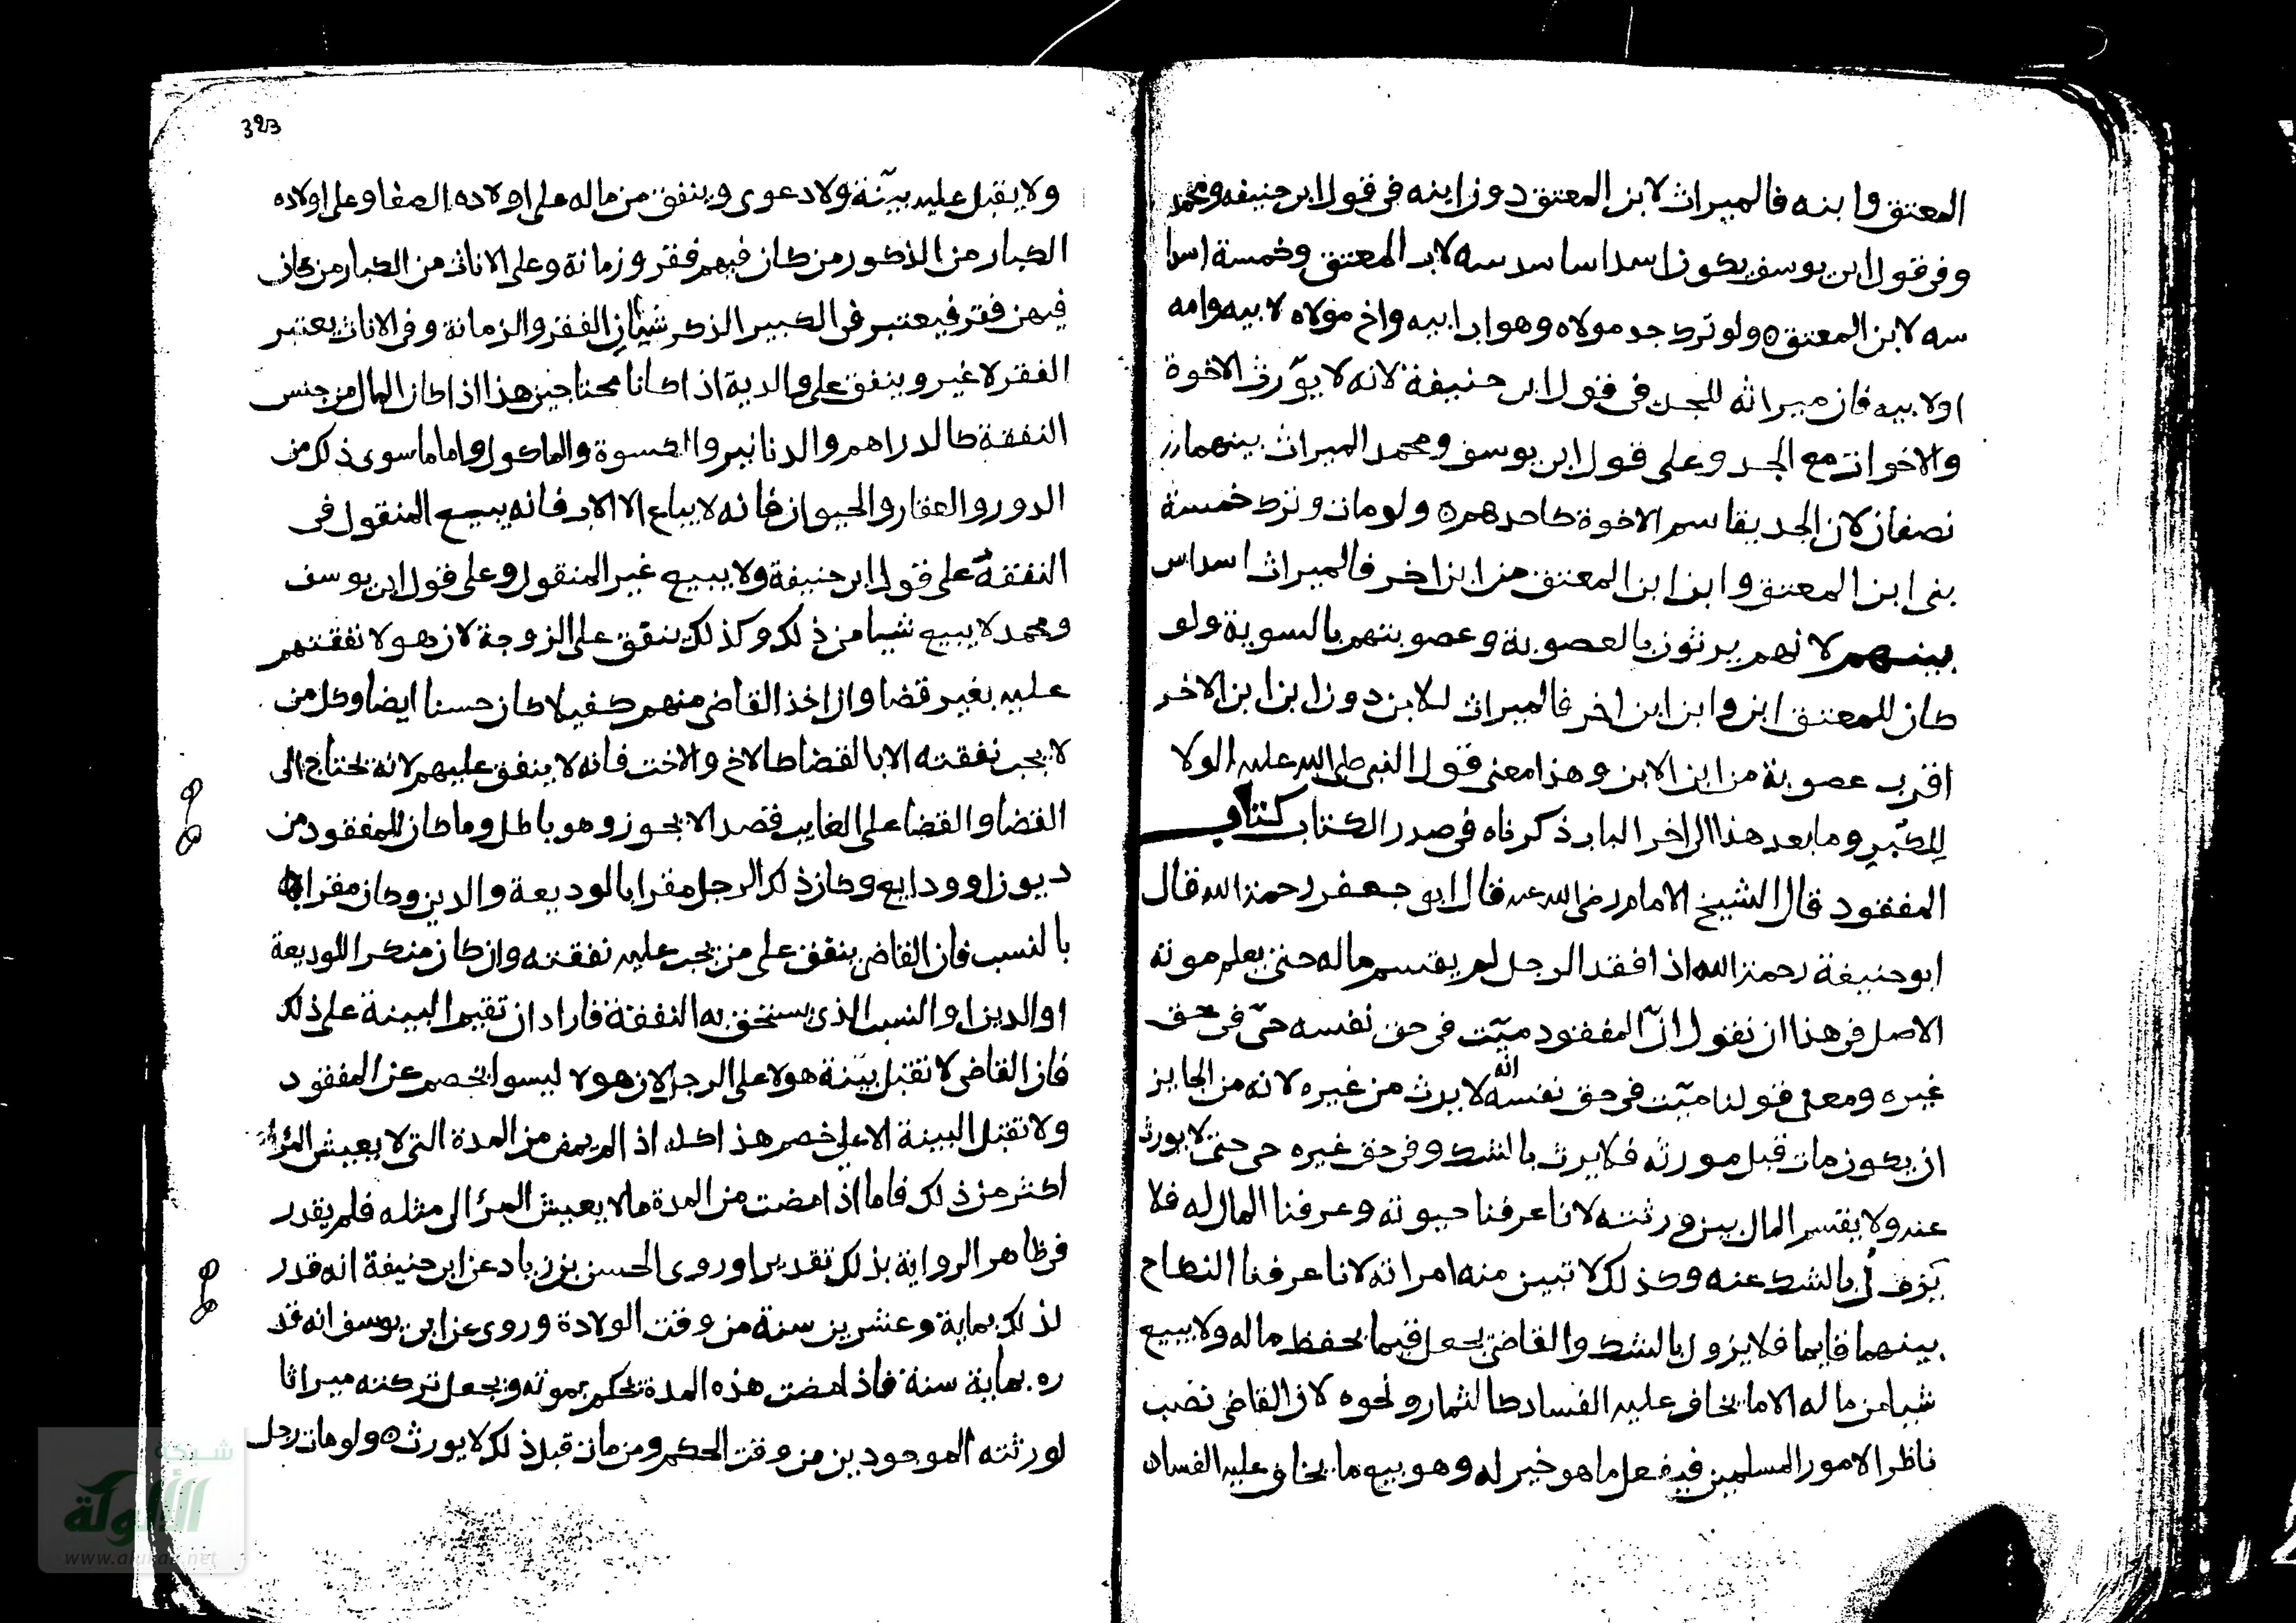 المعتق وابنه فالميراث لابن المعتق دون ابنه فى قول ابى حنيفه ومحمد
وفى قول ابى يوسف يكون اسداسا سدسه لاب المعتق وخمسة اسدا
سه لابن المعتق ه ولو ترك جد مولاه وهو اب ابيه واخ مولاه لابيه وامه
اولابيه فان ميراثه للجد فى قول ابى حنيفة لانه لا يورث الاخوة
والاخوات مع الجد وعلى قول ابى يوسف ومحمد الميراث بينهما
نصفان لان الجد يقاسم الاخوة كاحدهم ه ولو مات وترك خمسة
بنى ابن المعتق وابن ابن المعتق من ابن اخر فالميراث اسداس
بينهم لانهم يرثون بالعصوبة وعصوبتهم بالسوية ولو
كان للمعتق ابن وابن ابن اخر فالميراث للابن دون ابن ابن الاخر
اقرب عصوبة من ابن الابن وهذا معنى قول النبى صلى الله عليه الولا
للكبر وما بعد هذا الى اخر الباب ذكرناه فى صدر الكتاب كتاب
المفقود قال الشيخ الامام رضى الله عنه قال ابو جعفر رحمة الله قال
ابو حنيفة رحمة الله اذا فقد الرجل لم يقتسم ماله حتى يعلم موته
الاصل فى هذا ان نقول انّ المفقود ميّت فى حق نفسه حىّ فى حق
غيره ومعنى قولنا ميّت فى حق نفسه انه لا يرث من غيره لانه من الجايز
ان يكون مات قبل مورثه فلا يرث بالشك وفى حق غيره حى حتى لا يورث
عنه ولا يقتسم المال بين ورثته لانا عرفنا حيوته وعرفنا المال له فلا
يزول بالشك عنه وكذلك لا تبين منه امراته لانا عرفنا النكاح
بينهما قايما فلا يزول بالشك والقاضى يجعل قيما يحفظ ماله ولا يبيع
شيا من ماله الا ما يخاف عليه الفساد كالثمار ونحوه لان القاضى نصب
ناظرا لامور المسلمين فيفعل ما هو خير له وهو بيع ما يخاف عليه الفساد
323
ولا يقبل عليه بيّنة ولا دعوى وينفق من ماله على اولاده الصغا وعلى اولاده
الكبار من الذكور من كان فيهم فقر وزمانة وعلى الاناث من الكبار من كان
فيهن فقر فيعتبر فى الكبير الذكر شيان الفقر والزمانة وفى الاناث يعتبر
الفقر لا غير وينفق على والدية اذا كانا محتاجين هذا اذا كان المال من جنس
النفقة كالدراهم والدنانير والكسوة والماكول واما ما سوى ذلك من
الدور والعقار والحيوان فانه لا يباع الا الاب فانه يبيع المنقول فى
النفقة على قول ابى حنيفة ولا يبيع غير المنقول وعلى قول ابى يوسف
ومحمد لا يبيع شيا من ذلك وكذلك ينفق على الزوجة لان هولا نفقتهم
عليه بغير قضا وان اخذ القاضى منهم كفيلا كان حسنا ايضا وكل من
لا يجب نفقته الا بالقضا كالاخ والاخت فانه لا ينفق عليهم لانه يحتاج الى
القضا والقضا على الغايب قصد الا يجوز وهو باطل وما كان للمفقود من
ديون او ودايع وكان ذلك الرجل مقرا بالوديعة والدين وكان مقرا
بالنسب فان القاضى ينفق على من يجب عليه نفقته وان كان منكرا للوديعة
او الدين او النسب الذى يستحق به النفقة فاراد ان تقيم البينة على ذلك
فان القاضى لا تقبل بيّنة هولا على الرجل لان هولا ليسوا بخصم عن المفقود
ولا تقبل البينة الا على خصم هذا كله اذا لم يمض من المدة التى لا يعيش المرأ
اكثر من ذلك فاما اذا مضت من المدة ما لا يعيش المرأ الى مثله فلم يقدر
فى ظاهر الرواية بذلك تقديرا وروى الحسن بن زياد عن ابى حنيفة انه قدر
لذلك بماية وعشرين سنة من وقت الولادة وروى عن ابى يوسف انه قد
ره بماية سنة فاذا مضت هذه المدة يحكم بموته ويجعل تركته ميراثا
لورثته الموجودين من وقت الحكم ومن مات قبل ذلك لا يورث ه ولو مات رجل
شبكة
الألوكة
www.alukah.net